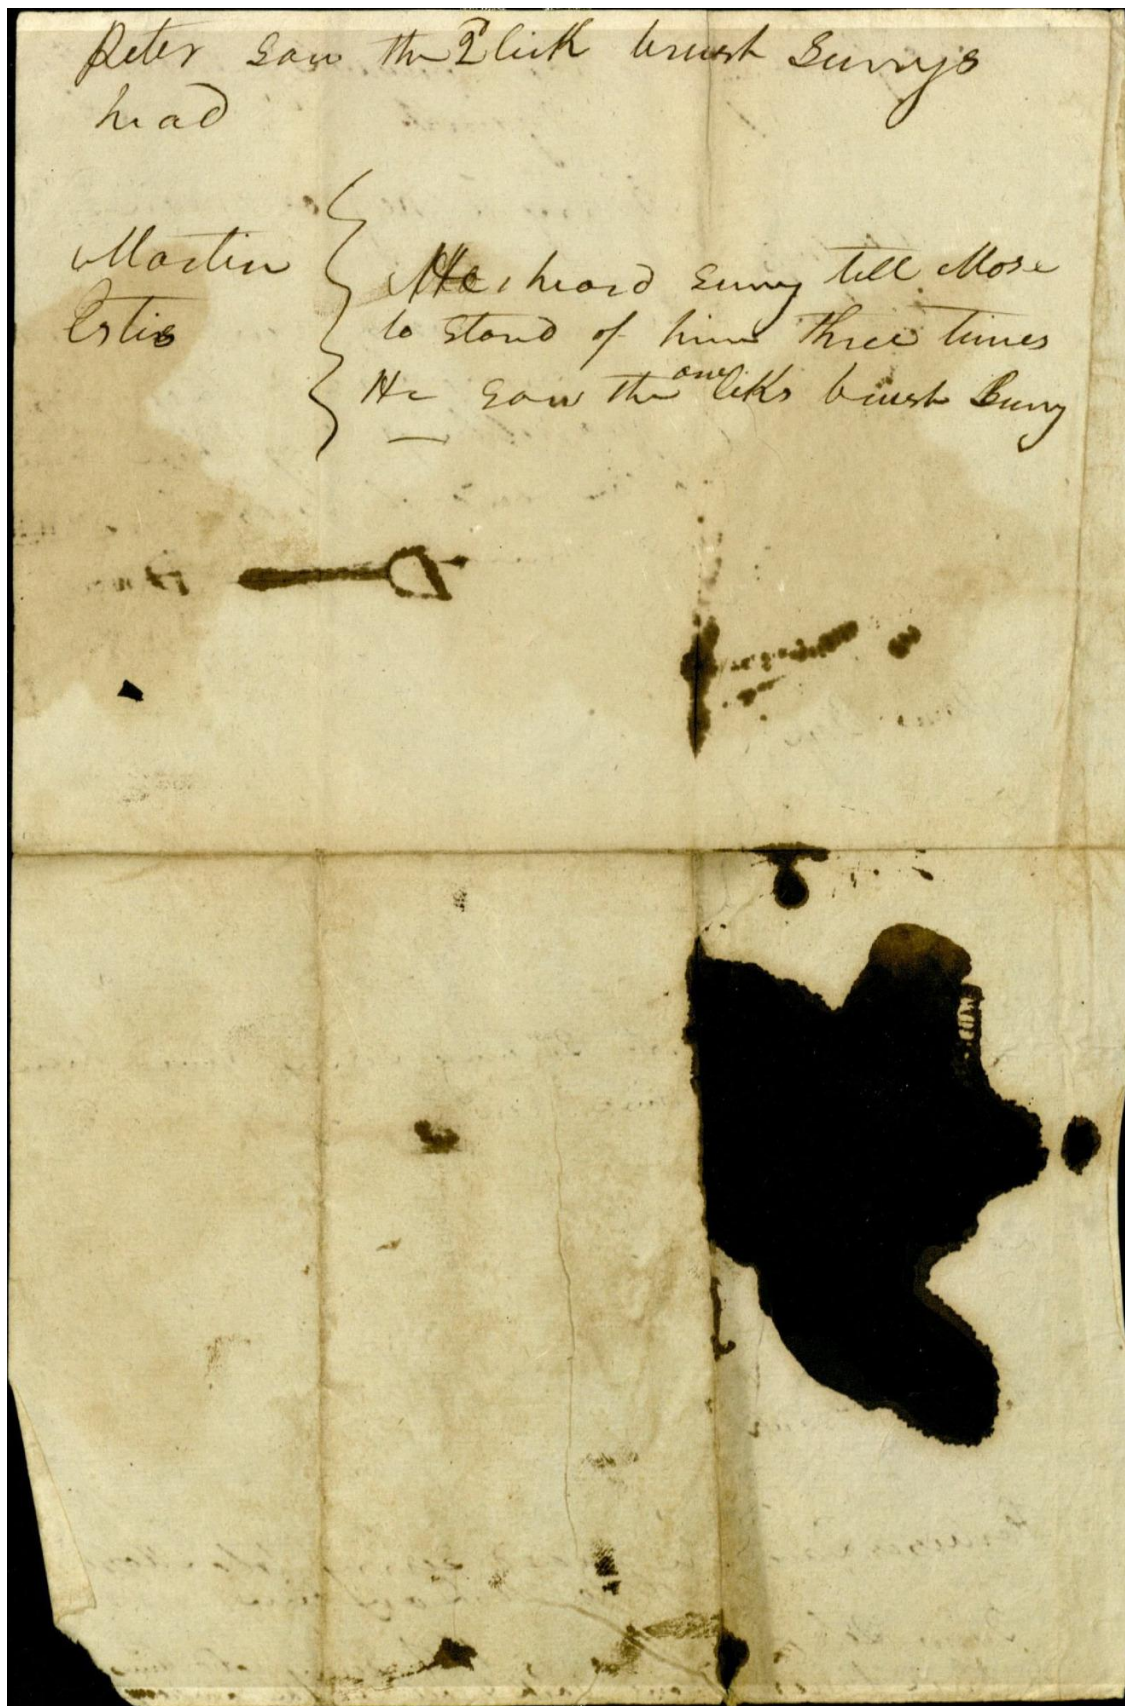 Peter saw the 2 lick brush Surrys
head
Martin
Estis
He heard surry tell Mose
to stand of him three times
He saw the one licks brush Surry